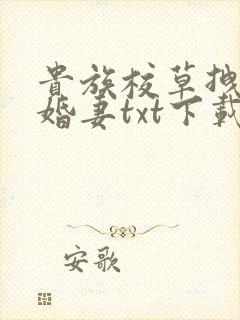 貴族校草拽
婚妻txt下載
安歌